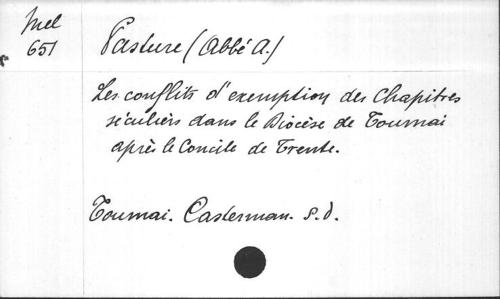 Mel
651
Pasture (Abbé A.)
Les conflits d'exemption des Chapitres
séculiers dans le Diocèse de Tournai
après le Concile de Trente.
Tournai. Casterman. s.d.